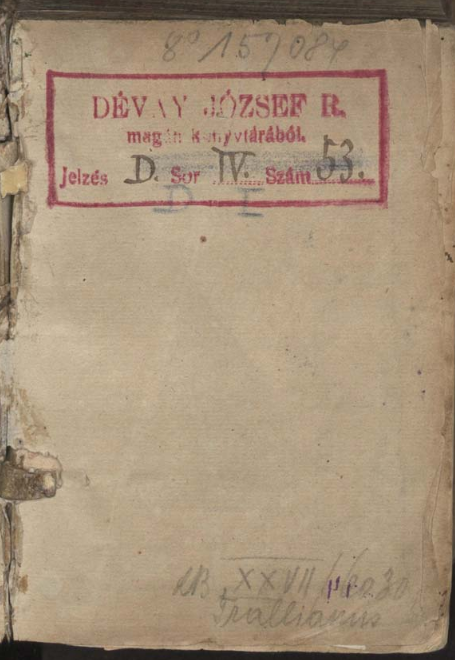 8° 15 084
DÉVAY JÓZSEF R.
magán könyvtárából.
Jelzés D. Sor IV. Szám 53.
D I
XXVII
Trallianus